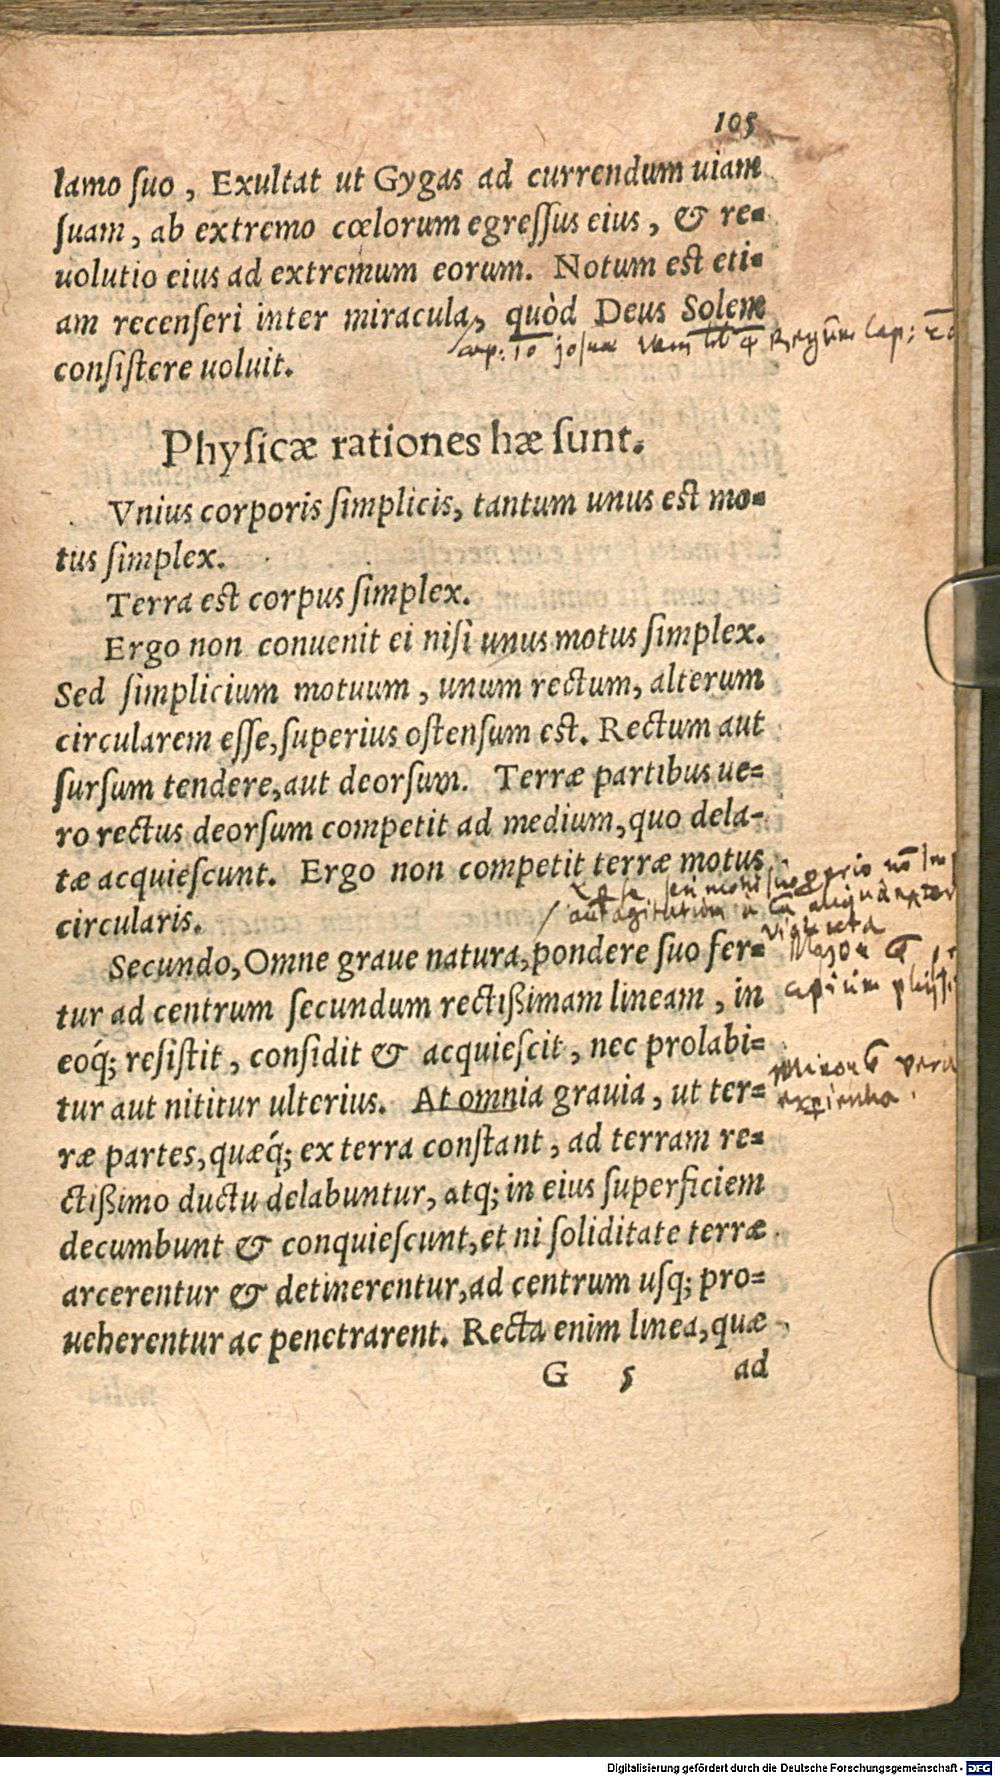 105
lamo ſuo, Exultat ut Gygas ad currendum uiam
ſuam, ab extremo cœlorum egreſſus eius, & re=
uolutio eius ad extremum eorum. Notum est eti=
am recenſeri inter miracula, quòd Deus Solem
cap: 10 josuæ lib 4 Regum Cap:
conſiſtere uoluit.
Phyſicæ rationes hæ ſunt.
Vnius corporis ſimplicis, tantum unus est mo=
tus ſimplex.
Terra est corpus ſimplex.
Ergo non conuenit ei niſi unus motus ſimplex.
Sed ſimplicium motuum, unum rectum, alterum
circularem eſſe, ſuperius oſtenſum est. Rectum aut
ſurſum tendere, aut deorſum. Terræ partibus ue=
ro rectus deorſum competit ad medium, quo dela-
tæ acquieſcunt. Ergo non competit terræ motus
circularis.
Secundo, Omne graue natura, pondere ſuo fer=
tur ad centrum ſecundum rectißimam lineam, in
eoq́; reſiſtit, conſidit & acquieſcit, nec prolabi=
tur aut nititur ulterius. At omnia grauia, ut ter=
ræ partes, quæq́; ex terra conſtant, ad terram re=
ctißimo ductu delabuntur, atq; in eius ſuperficiem
decumbunt & conquieſcunt, et ni ſoliditate terræ
arcerentur & detinerentur, ad centrum uſq; pro=
ueherentur ac penetrarent. Recta enim linea, quæ
G 5 ad
Digitalisierung gefördert durch die Deutsche Forschungsgemeinschaft - DFG